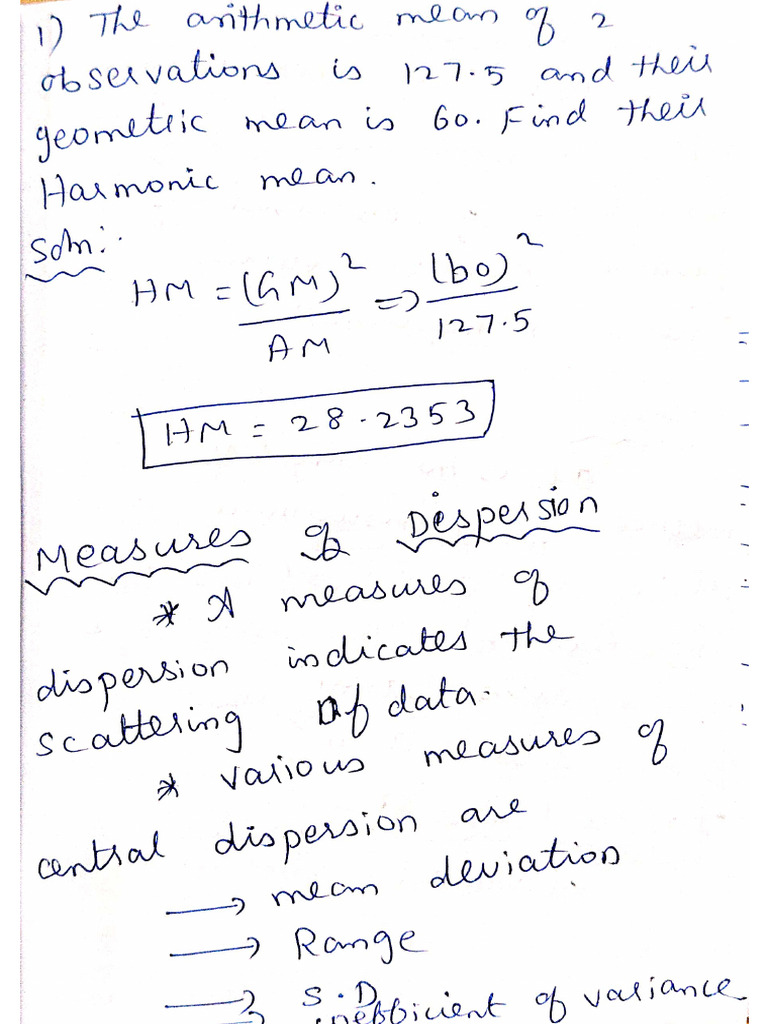 1) The arithmetic mean of 2
observations is 127.5 and their
geometric mean is 60. Find their
Harmonic mean.
Soln:
HM = (GM)² / AM => (60)² / 127.5
HM = 28.2353
Measures of Dispersion
* A measures of
dispersion indicates the
scattering of data.
* various measures of
central dispersion are
→ mean deviation
→ Range
→ S.D
coefficient of variance